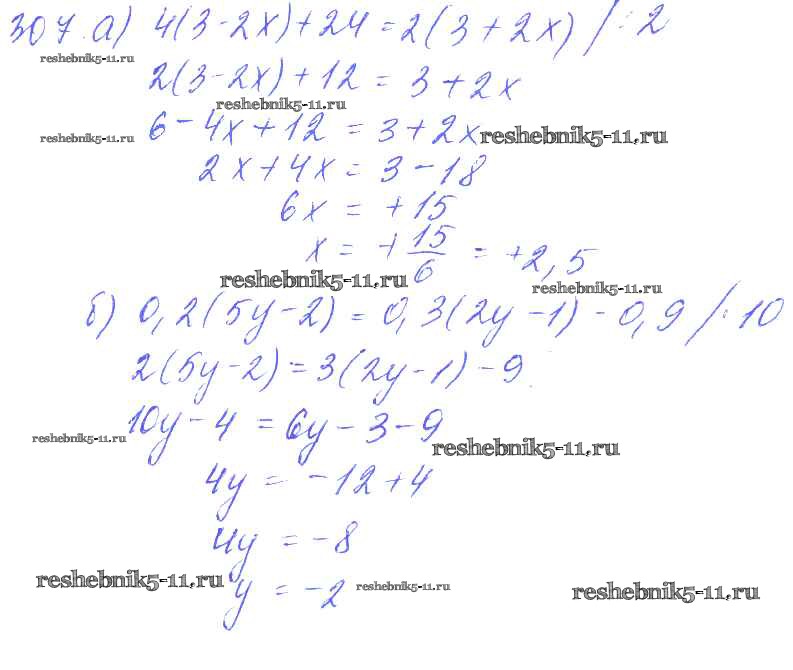 307. а) 4(3-2x)+24=2(3+2x) /:2
reshebnik5-11.ru
2(3-2x)+12=3+2x
reshebnik5-11.ru
reshebnik5-11.ru
6-4x+12=3+2x
reshebnik5-11.ru
2x+4x=3-18
6x=+15
x=+15/6=+2,5
reshebnik5-11.ru
reshebnik5-11.ru
б) 0,2(5y-2)=0,3(2y-1)-0,9 /·10
2(5y-2)=3(2y-1)-9
10y-4=6y-3-9
reshebnik5-11.ru
reshebnik5-11.ru
4y=-12+4
4y=-8
reshebnik5-11.ru
y=-2
reshebnik5-11.ru
reshebnik5-11.ru